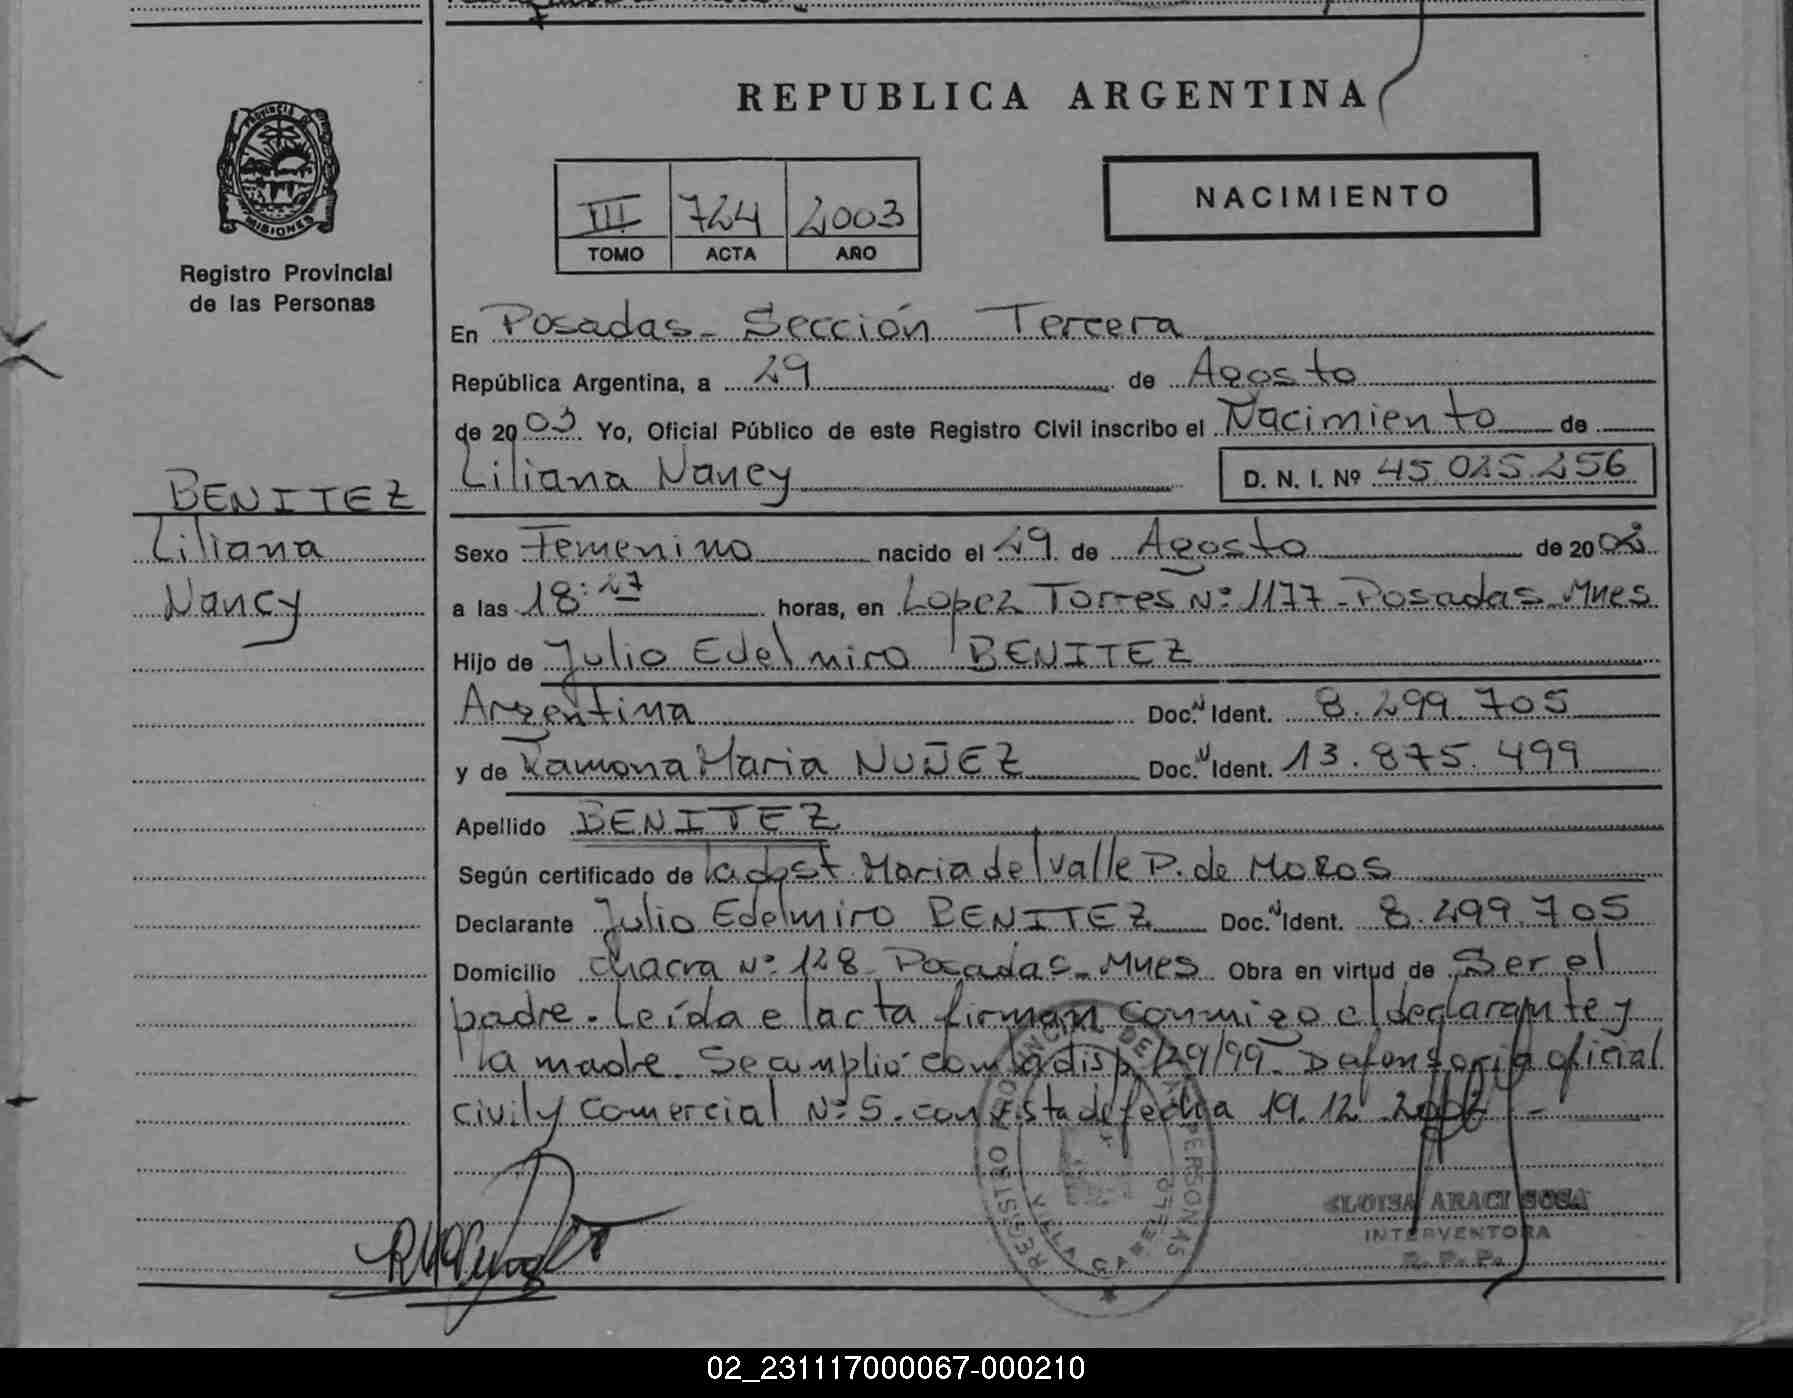 REPUBLICA ARGENTINA
PROVINCIA DE MISIONES
Registro Provincial
de las Personas
III 724 2003
TOMO ACTA AÑO
NACIMIENTO
En Posadas - Sección Tercera
República Argentina, a 29 de Agosto
de 2003 Yo, Oficial Público de este Registro Civil inscribo el Nacimiento de
Liliana Nancy D. N. I. Nº 45.025.256
BENITEZ
Liliana
Nancy
Sexo Femenino nacido el 29 de Agosto de 20
a las 18:27 horas, en Lopez Torres Nº 1177 - Posadas - Mnes
Hijo de Julio Edelmiro BENITEZ
Argentina Doc.N Ident. 8.299.705
y de Ramona Maria NUÑEZ Doc.N Ident. 13.875.499
Apellido BENITEZ
Según certificado de la obst Maria del Valle P. de MOROS
Declarante Julio Edelmiro BENITEZ Doc.N Ident. 8.299.705
Domicilio chacra Nº 128 - Posadas - Mnes Obra en virtud de Ser el
padre. Leída el acta firman conmigo el declarante y
la madre. Se cumplió con la disp. 129/99 - Defensoria oficial
civil y Comercial Nº 5. con vista de fecha 19.12.2002 -
REGISTRO PROVINCIAL DE LAS PERSONAS
ELOISA ARACI SOSA
INTERVENTORA
R. P. P.
02_231117000067-000210